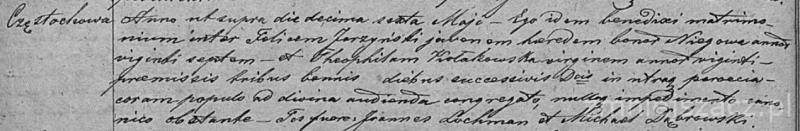 Częstochowa Anno ut supra die decima sexta Maja – Ego idem benedixi matrimo-
nium inter Felicem Jarzyński juvenem haeredem bonor Niegowa annor
viginti septem – et Theophilam Kołakowska virginem annor viginti –
praemissis tribus bannis diebus successivis Dcis in utraq paroecia –
coram populo ad divina audienda congregato, nulloq impedimento cano-
nico obstante – Tes fuere: Joannes Lochman et Michael Dąbrowski.